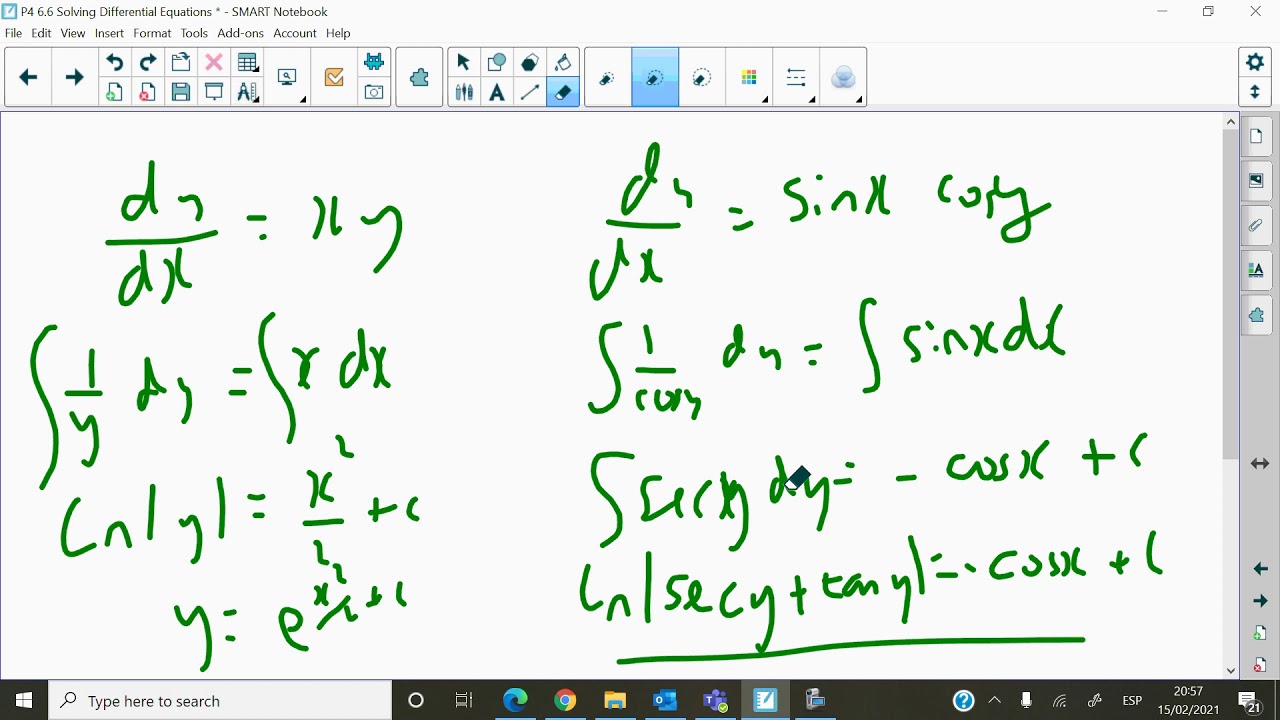 P4 6.6 Solving Differential Equations * - SMART Notebook
File Edit View Insert Format Tools Add-ons Account Help
dy/dx = xy
∫ 1/y dy = ∫ x dx
ln|y| = x²/2 + c
y = e^(x²/2 + c)
dy/dx = sinx cosy
∫ 1/cosy dy = ∫ sinx dx
∫ secy dy = - cosx + c
ln|secy + tany| = - cosx + c
Type here to search
ESP
20:57
15/02/2021
21